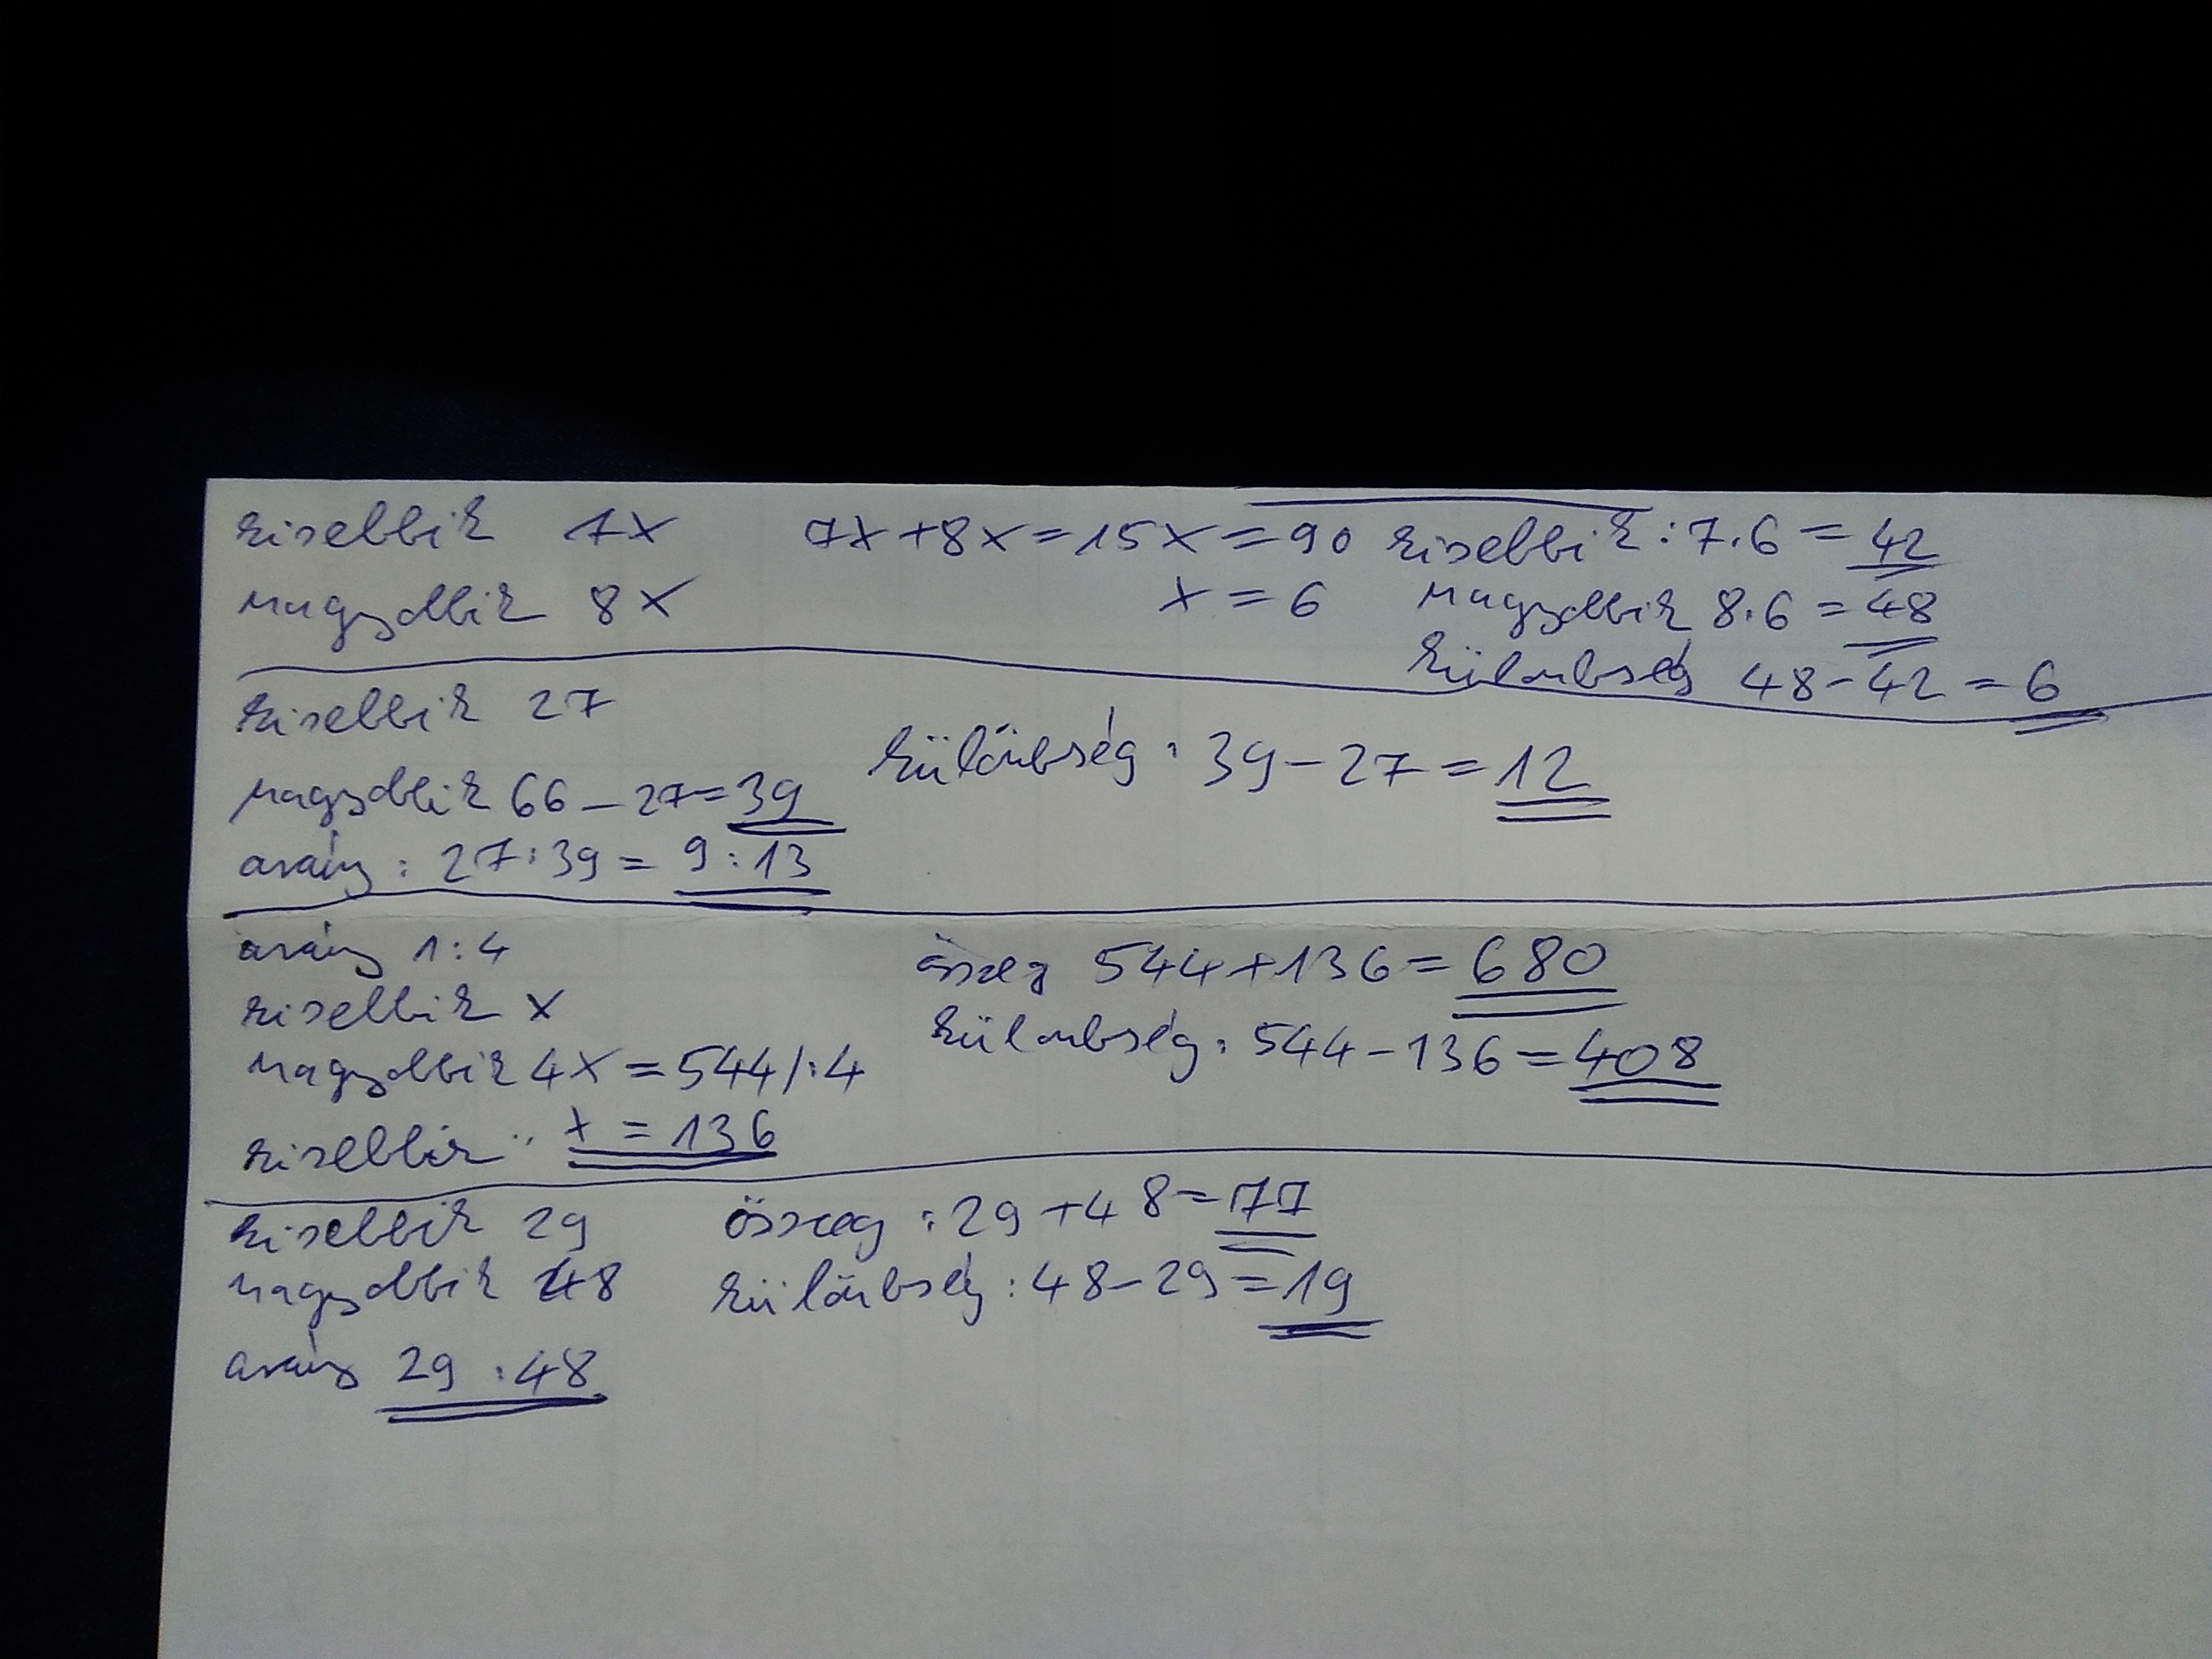 kisebbik 7x 7x+8x=15x=90 kisebbik: 7·6=42
nagyobbik 8x x=6 nagyobbik 8·6=48
különbség 48-42=6
kisebbik 27
különbség: 39-27=12
nagyobbik 66-27=39
arány: 27:39=9:13
arány 1:4 összeg 544+136=680
kisebbik x
különbség: 544-136=408
nagyobbik 4x=544/:4
kisebbik: x=136
kisebbik 29 összeg: 29+48=77
nagyobbik 48 különbség: 48-29=19
arány 29:48